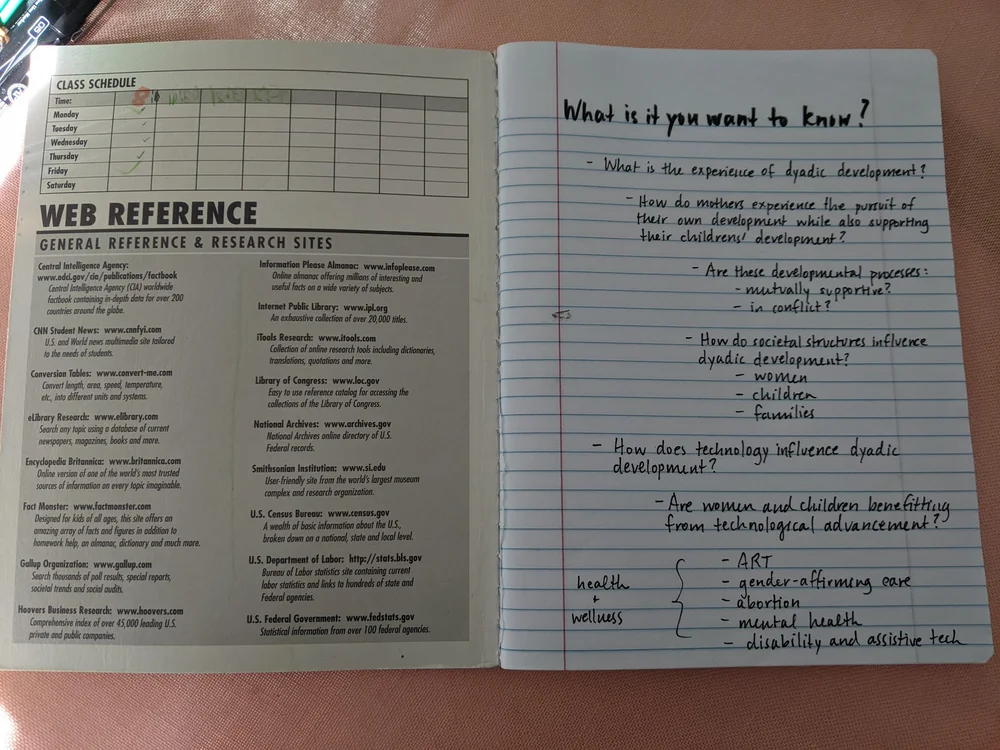 CLASS SCHEDULE
Time:
Monday
Tuesday
Wednesday
Thursday
Friday
Saturday
WEB REFERENCE
GENERAL REFERENCE & RESEARCH SITES
Central Intelligence Agency:
www.odci.gov/cia/publications/factbook
Central Intelligence Agency (CIA) worldwide
factbook containing in-depth data for over 200
countries around the globe.
CNN Student News: www.cnnfyi.com
U.S. and World news multimedia site tailored
to the needs of students.
Conversion Tables: www.convert-me.com
Convert length, area, speed, temperature,
etc., into different units and systems.
eLibrary Research: www.elibrary.com
Search any topic using a database of current
newspapers, magazines, books and more.
Encyclopedia Britannica: www.britannica.com
Online version of one of the world's most trusted
sources of information on every topic imaginable.
Fact Monster: www.factmonster.com
Designed for kids of all ages, this site offers an
amazing array of facts and figures in addition to
homework help, an almanac, dictionary and much more.
Gallup Organization: www.gallup.com
Search thousands of poll results, special reports,
societal trends and social audits.
Hoovers Business Research: www.hoovers.com
Comprehensive index of over 45,000 leading U.S.
private and public companies.
Information Please Almanac: www.infoplease.com
Online almanac offering millions of interesting and
useful facts on a wide variety of subjects.
Internet Public Library: www.ipl.org
An exhaustive collection of over 20,000 titles.
iTools Research: www.itools.com
Collection of online research tools including dictionaries,
translations, quotations and more.
Library of Congress: www.loc.gov
Easy to use reference catalog for accessing the
collections of the Library of Congress.
National Archives: www.archives.gov
National Archives online directory of U.S.
Federal records.
Smithsonian Institution: www.si.edu
User-friendly site from the world's largest museum
complex and research organization.
U.S. Census Bureau: www.census.gov
A wealth of basic information about the U.S.,
broken down on a national, state and local level.
U.S. Department of Labor: http://stats.bls.gov
Bureau of Labor statistics site containing current
labor statistics and links to hundreds of state and
Federal agencies.
U.S. Federal Government: www.fedstats.gov
Statistical information from over 100 federal agencies.
What is it you want to know?
- What is the experience of dyadic development?
- How do mothers experience the pursuit of
their own development while also supporting
their childrens' development?
- Are these developmental processes:
- mutually supportive?
- in conflict?
- How do societal structures influence
dyadic development?
- women
- children
- families
- How does technology influence dyadic
development?
- Are women and children benefitting
from technological advancement?
health
+
wellness
- ART
- gender-affirming care
- abortion
- mental health
- disability and assistive tech